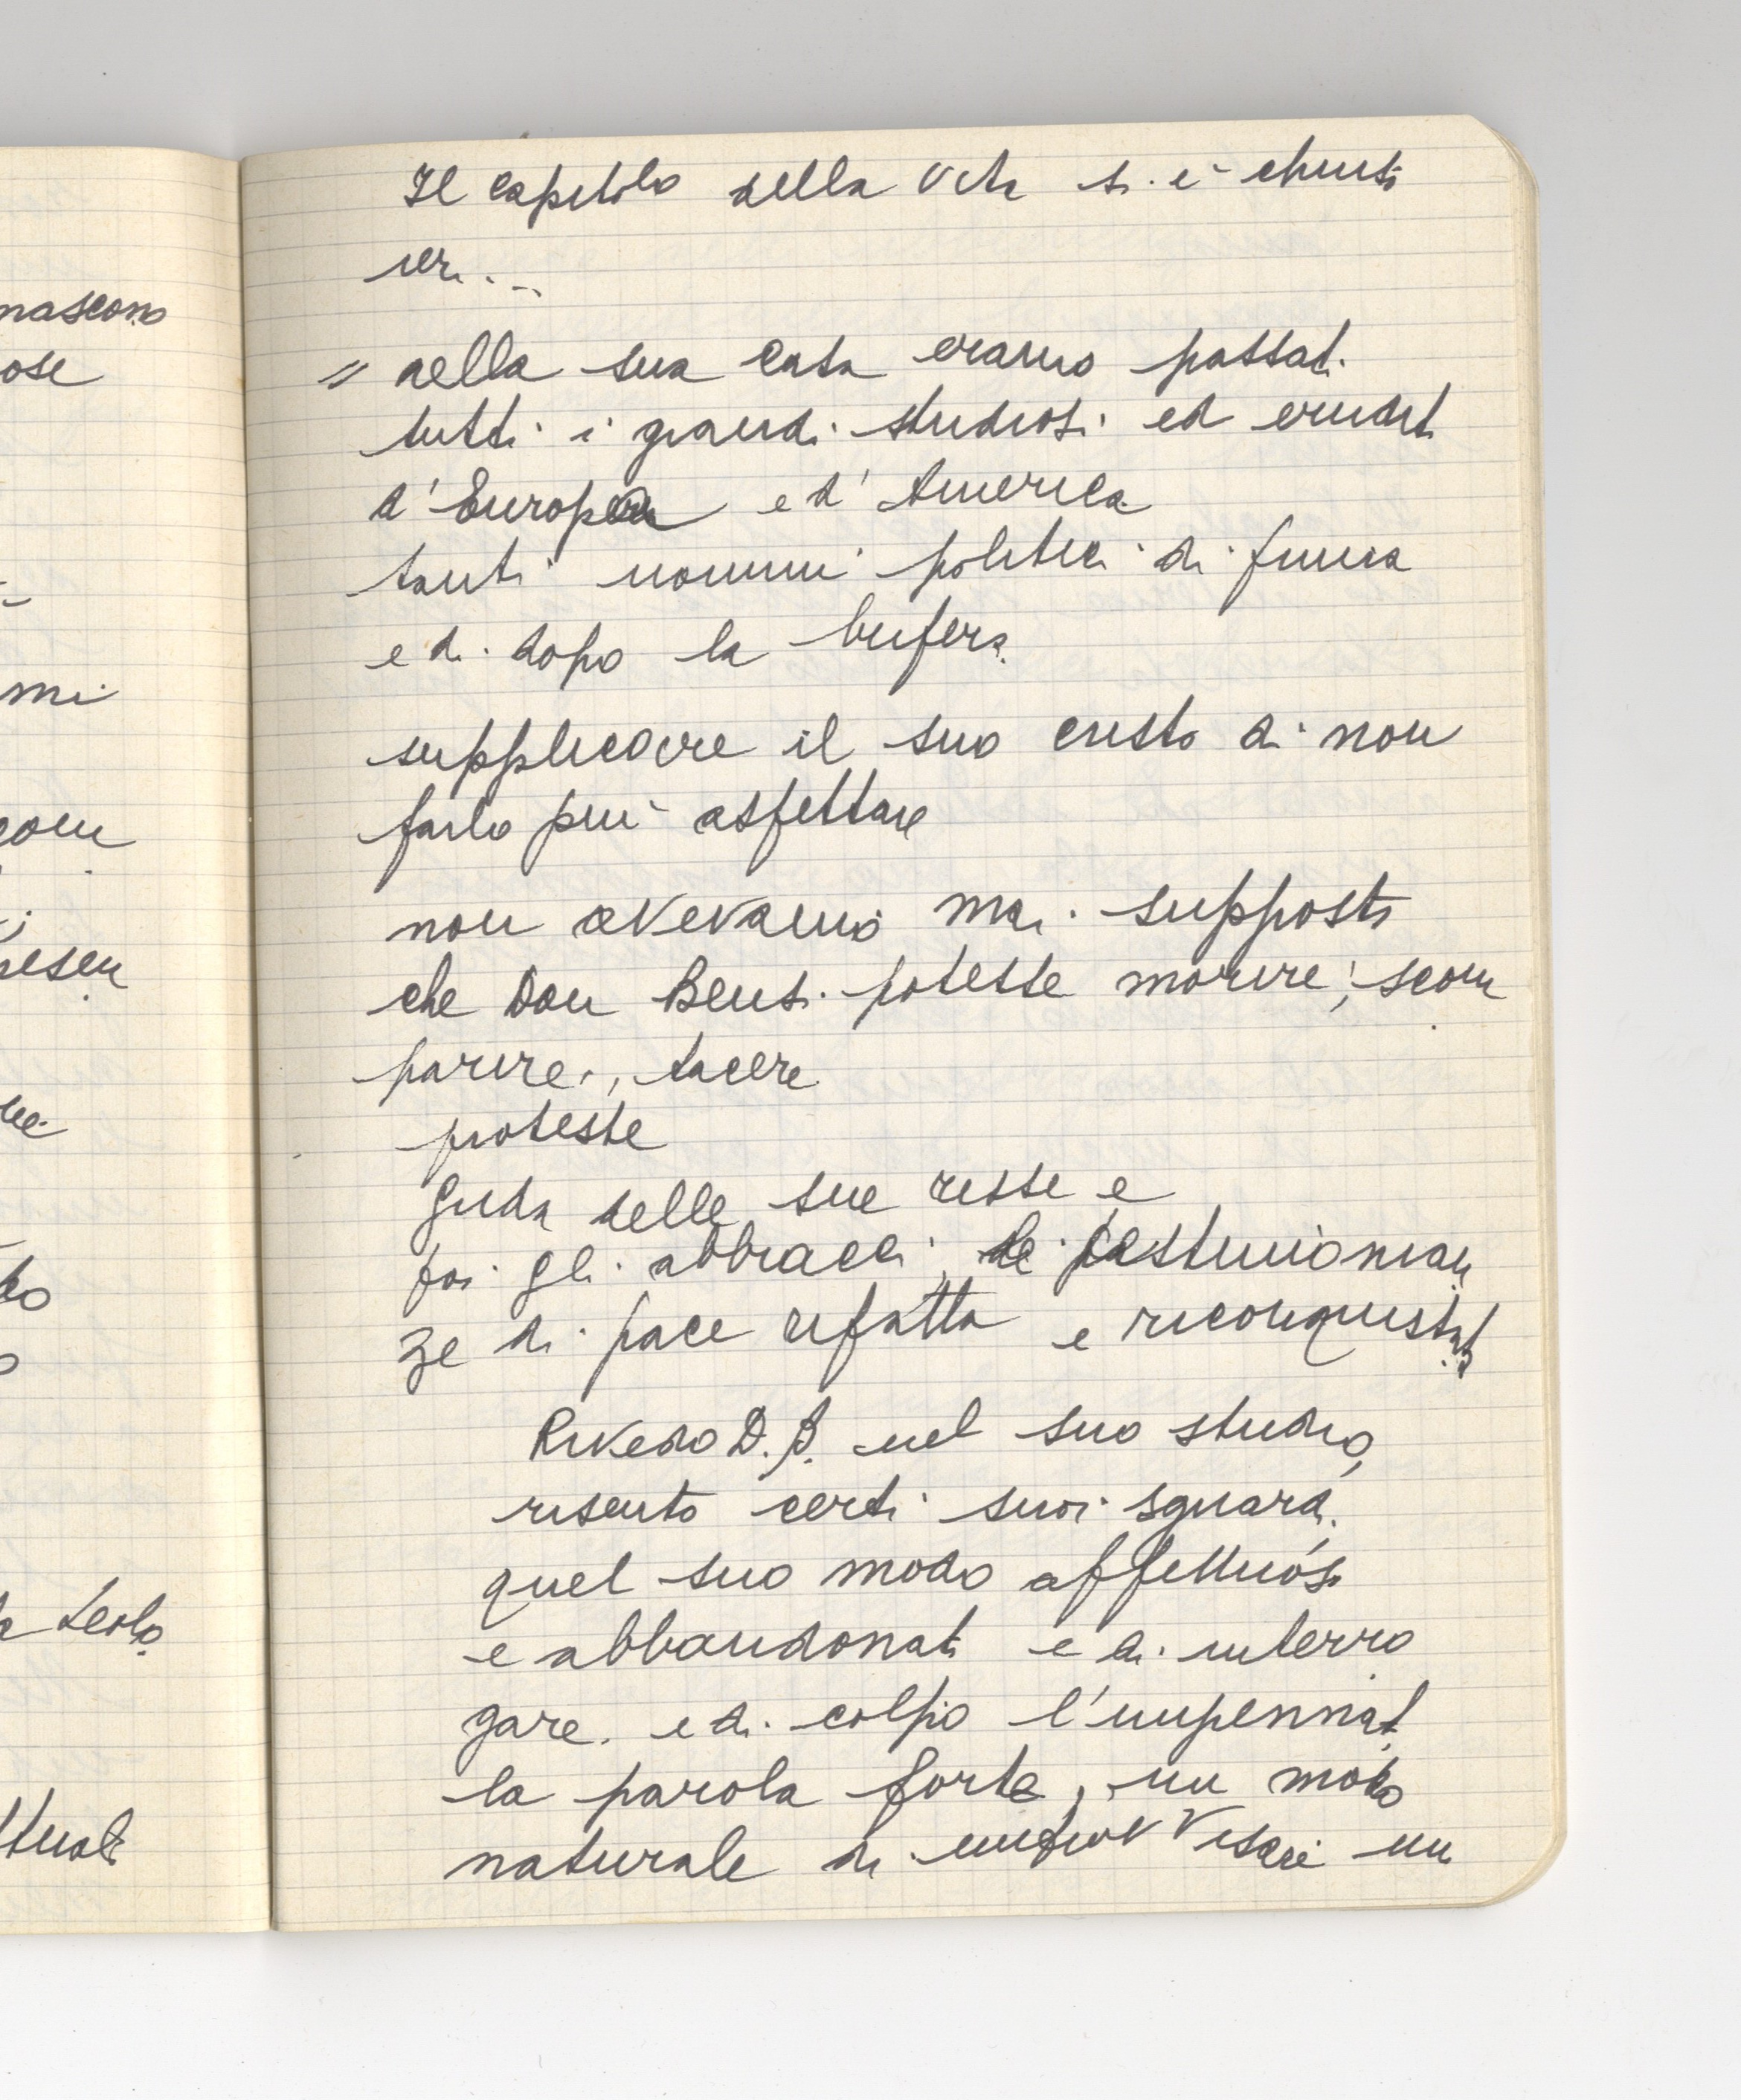 nascono
ose
mi
to
ttuali
Il capitolo della vita si è chiuso
ieri...
" nella sua casa erano passati
tutti i grandi studiosi ed eruditi
d'Europa e d'America
tanti uomini politici di prima
e di dopo la bufera
supplicare il suo cristo di non
farlo più aspettare
non avevamo mai supposto
che Don Bensi potesse morire, scom
parire, tacere
proteste
Guida delle sue risse e
poi gli abbracci, le testimonian
ze di pace rifatta e riconquistata
Rivedo D.B. nel suo studio,
risento certi suoi sguardi
quel suo modo affettuoso
e abbandonato e di interro
gare. e di colpo l'impennata
la parola forte, un modo
naturale di improvvisare un